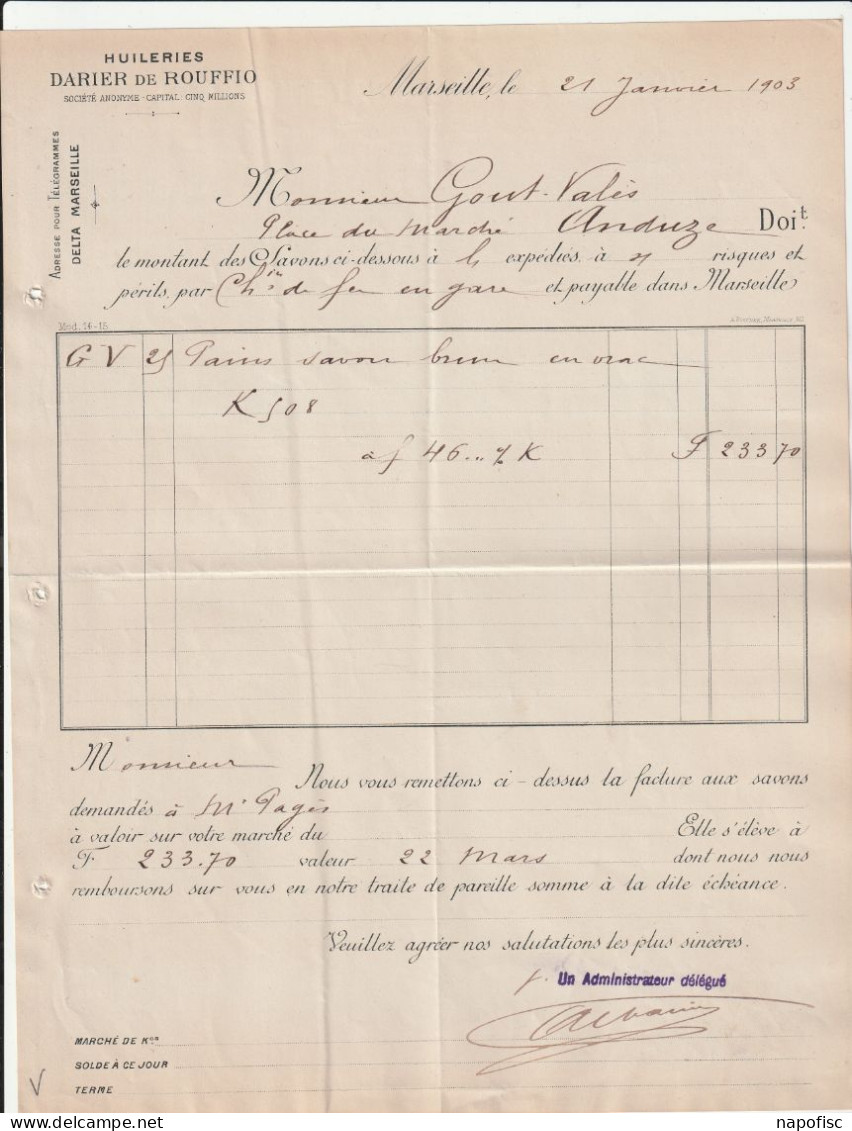 HUILERIES
DARIER DE ROUFFIO
SOCIÉTÉ ANONYME - CAPITAL: CINQ MILLIONS
ADRESSE POUR TÉLÉGRAMMES
DELTA MARSEILLE
Marseille, le 21 Janvier 1903
Monsieur Gout-Valès
Place du Marché Anduze Doit
le montant des Savons ci-dessous à expédiés, à risques et
périls, par Chin de fer en gare et payable dans Marseille
Mod. 16-15.
G V 25 Pains savon brun en vrac
K 508
à f 46 ,, % K F 233 70
Monsieur
Nous vous remettons ci-dessus la facture aux savons
demandés à Mr Pagès
à valoir sur votre marché du Elle s'élève à
F. 233.70 valeur 22 Mars dont nous nous
remboursons sur vous en notre traite de pareille somme à la dite échéance.
Veuillez agréer nos salutations les plus sincères.
p. Un Administrateur délégué
MARCHÉ DE Kos
SOLDE À CE JOUR
TERME
V
napofisc